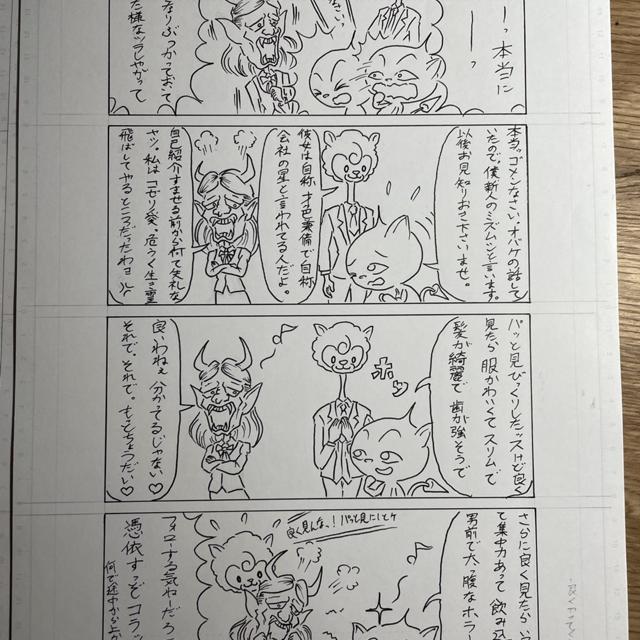 ーッ本当に
ーーッ
さい!
なりぶつかっておいて
た様なツラしやがって
本当ッゴメンなさい。オバケの話して
いたので、僕新人のミズムシと言います。
以後お見知りおき下さいませ。
彼女は自称才色兼備で自称
会社の星と言われてる人だよ。
自己紹介すませる前から何て失礼な
ヤツ。私はコゼリ愛。危うく生き霊
飛ばしてやるところだったわョ
パッと見びっくりしたッスけど良く
見たら服かわいくてスリムで
髪が綺麗で歯が強そうで
ホッ
良いわねぇ分かてるじゃない♡
それで、それで。もっとちょうだい♡
さらに良く見たら
て集中力あって飲み込
男前で太っ腹なホラー
良く見んな、!パッと見にしとケ
フォローする気ねーだろう
憑依すっぞコラッ
何で途中から